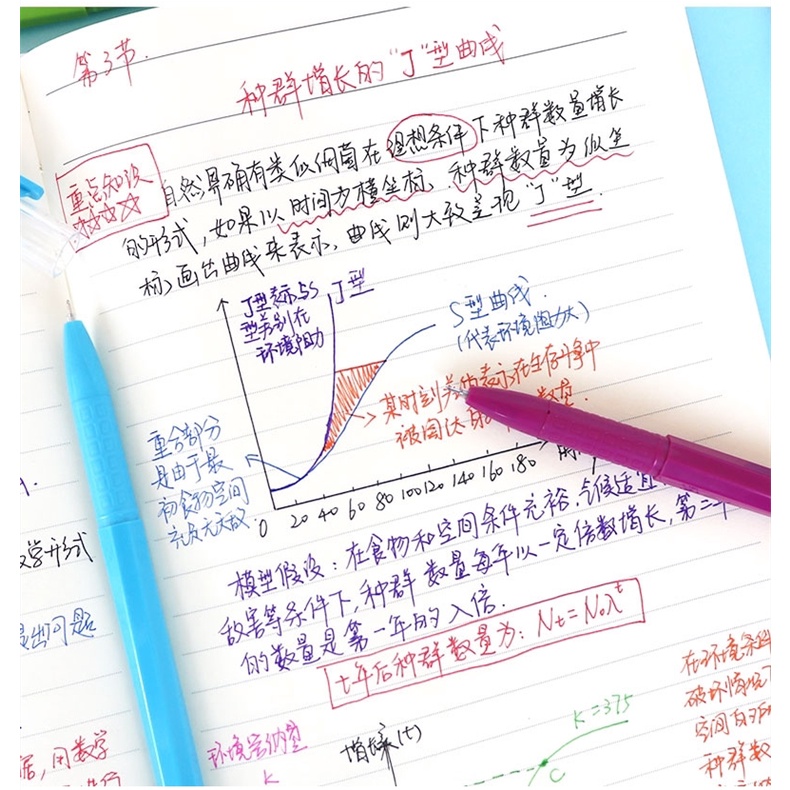 第3节.
种群增长的"J"型曲线
重点知识
☆☆☆☆
自然界确有类似细菌在理想条件下种群数量增长
的形式，如果以时间为横坐标、种群数量为纵坐
标画出曲线来表示，曲线则大致呈现"J"型.
J型表示与S
型差别在
环境阻力
J型
S型曲线.
(代表环境阻力大)
某时刻差值表示在生存斗争中
被淘汰
数量.
重合部分
是由于最
初食物空间
充足无天敌
0 20 40 60 80 100 120 140 160 180
模型假设：在食物和空间条件充裕，气候适宜
敌害等条件下，种群数量每年以一定倍数增长，第二年
的数量是第一年的 λ倍.
t年后种群数量为：Nt=N₀λᵗ
数学形式
提出问题
据，用数学
进行
环境容纳量
K
增长(t)
K=375
C
在环境条件
破坏情况下
空间
种群数